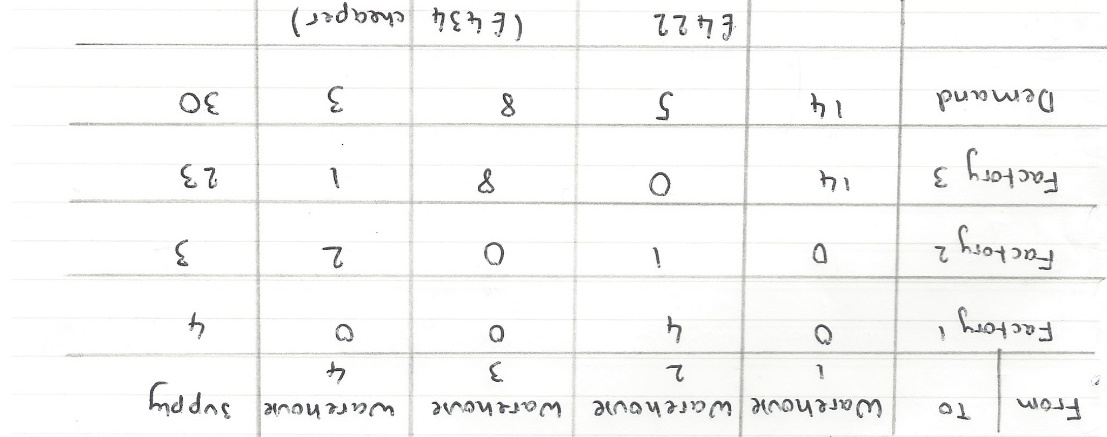 From To Warehouse 1 Warehouse 2 Warehouse 3 Warehouse 4 Supply
Factory 1 0 4 0 0 4
Factory 2 0 1 0 2 3
Factory 3 14 0 8 1 23
Demand 14 5 8 3 30
£422 (£434 cheaper)